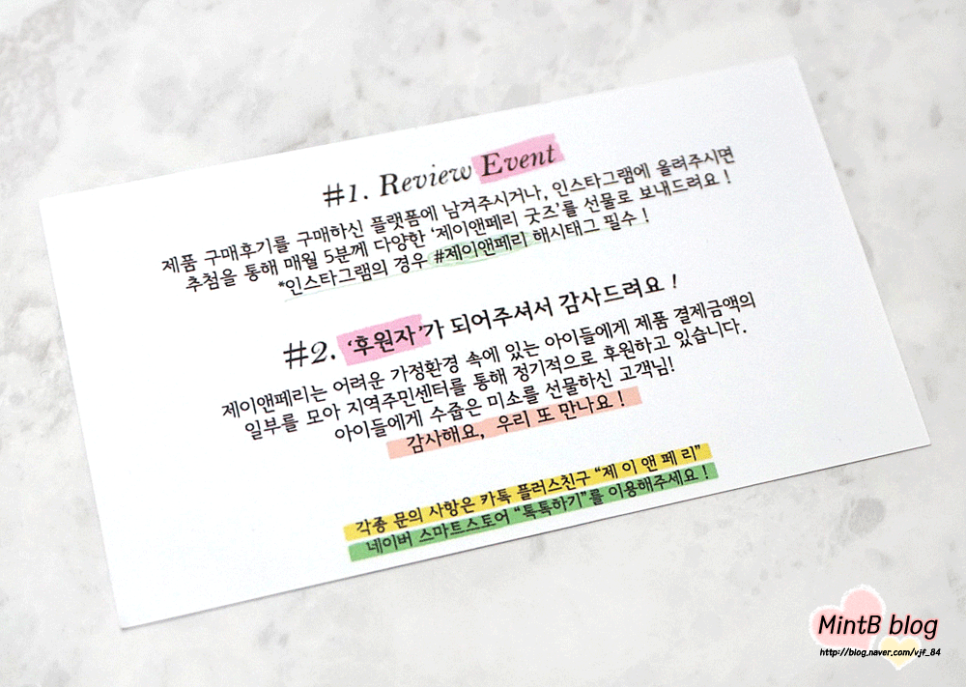 #1. Review Event
제품 구매후기를 구매하신 플랫폼에 남겨주시거나, 인스타그램에 올려주시면
추첨을 통해 매월 5분께 다양한 '제이앤페리 굿즈'를 선물로 보내드려요 !
*인스타그램의 경우 #제이앤페리 해시태그 필수 !
#2. '후원자'가 되어주셔서 감사드려요 !
제이앤페리는 어려운 가정환경 속에 있는 아이들에게 제품 결제금액의
일부를 모아 지역주민센터를 통해 정기적으로 후원하고 있습니다.
아이들에게 수줍은 미소를 선물하신 고객님!
감사해요, 우리 또 만나요 !
각종 문의 사항은 카톡 플러스친구 "제 이 앤 페 리"
네이버 스마트스토어 "톡톡하기"를 이용해주세요 !
MintB blog
http://blog.naver.com/vjf_84